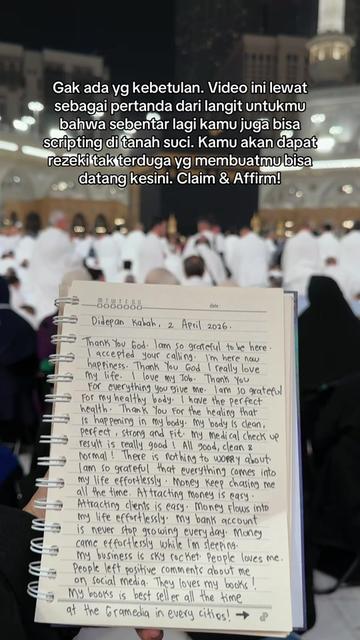 Gak ada yg kebetulan. Video ini lewat
sebagai pertanda dari langit untukmu
bahwa sebentar lagi kamu juga bisa
scripting di tanah suci. Kamu akan dapat
rezeki tak terduga yg membuatmu bisa
datang kesini. Claim & Affirm!
date :
Didepan Kabah, 2 April 2026.
Thank you God. I am so grateful to be here.
I accepted your calling. I'm here now
happiness. Thank you God I really love
my life. I love my job. Thank you
for everything you give me. I am so grateful
for my healthy body. I have the perfect
health. Thank you for the healing that
is happening in my body. My body is clean,
perfect, strong and fit. My medical check up
result is really good! All good, clean &
normal! There is nothing to worry about
I am so grateful that everything comes into
my life effortlessly. Money keep chasing me
all the time. Attracting money is easy.
Attracting clients is easy. Money flows into
my life effortlessly. My bank account
is never stop growing every day. Money
came effortlessly while I'm sleeping.
My business is sky rocket. People loves me.
People left positive comments about me
on social media. They loves my books!
My books is best seller all the time
at the Gramedia in every cities! →